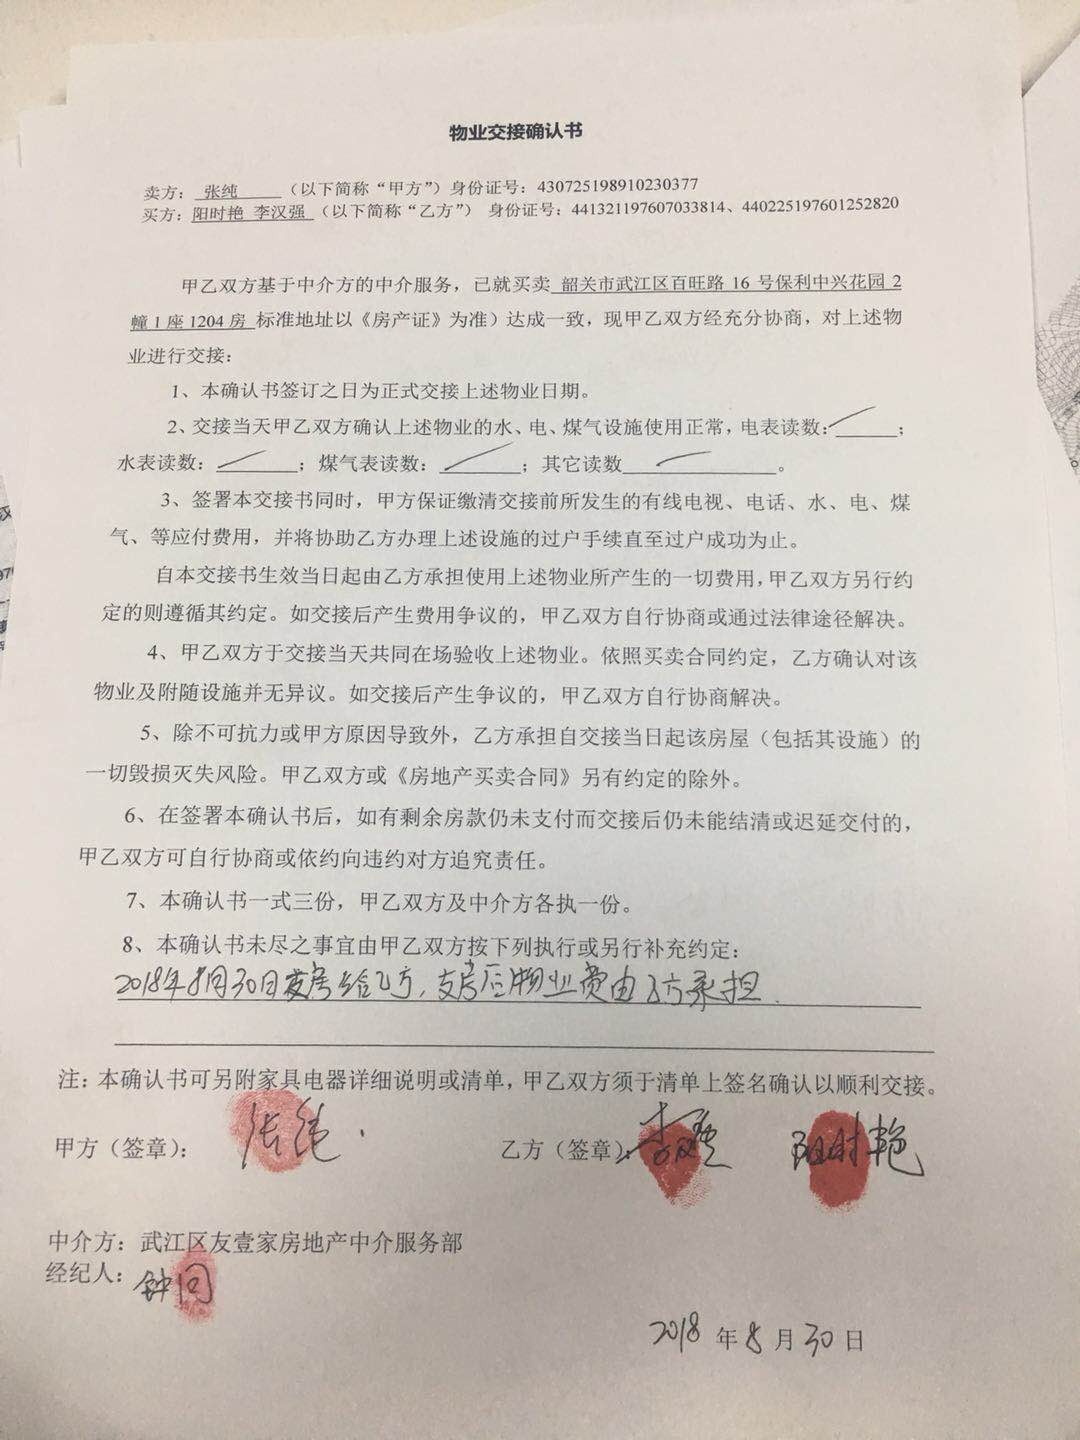 物业交接确认书
卖方：张纯（以下简称“甲方”）身份证号：430725198910230377
买方：阳时艳 李汉强（以下简称“乙方”） 身份证号：441321197607033814、440225197601252820
甲乙双方基于中介方的中介服务，已就买卖 韶关市武江区百旺路 16 号保利中兴花园 2
幢 1 座 1204 房 标准地址以《房产证》为准）达成一致，现甲乙双方经充分协商，对上述物
业进行交接：
1、本确认书签订之日为正式交接上述物业日期。
2、交接当天甲乙双方确认上述物业的水、电、煤气设施使用正常，电表读数：；
水表读数：；煤气表读数：；其它读数。
3、签署本交接书同时，甲方保证缴清交接前所发生的有线电视、电话、水、电、煤
气、等应付费用，并将协助乙方办理上述设施的过户手续直至过户成功为止。
自本交接书生效当日起由乙方承担使用上述物业所产生的一切费用，甲乙双方另行约
定的则遵循其约定。如交接后产生费用争议的，甲乙双方自行协商或通过法律途径解决。
4、甲乙双方于交接当天共同在场验收上述物业。依照买卖合同约定，乙方确认对该
物业及附随设施并无异议。如交接后产生争议的，甲乙双方自行协商解决。
5、除不可抗力或甲方原因导致外，乙方承担自交接当日起该房屋（包括其设施）的
一切毁损灭失风险。甲乙双方或《房地产买卖合同》另有约定的除外。
6、在签署本确认书后，如有剩余房款仍未支付而交接后仍未能结清或迟延交付的，
甲乙双方可自行协商或依约向违约对方追究责任。
7、本确认书一式三份，甲乙双方及中介方各执一份。
8、本确认书未尽之事宜由甲乙双方按下列执行或另行补充约定：
2018年8月30日交房给乙方，交房后物业费由乙方承担.
注：本确认书可另附家具电器详细说明或清单，甲乙双方须于清单上签名确认以顺利交接。
甲方（签章）：张纯 乙方（签章）：李汉强 阳时艳
中介方：武江区友壹家房地产中介服务部
经纪人：钟同
2018 年 8 月 30 日